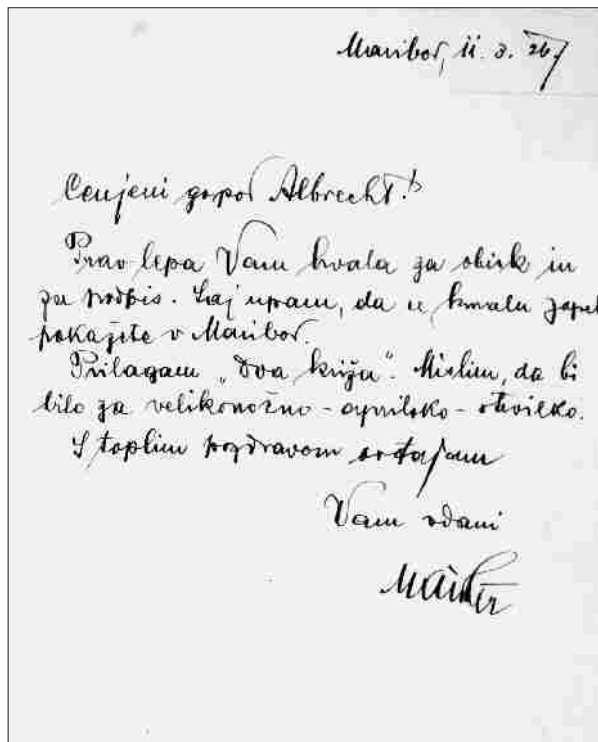 Maribor, 11. 3. 26.
Cenjeni gospod Albrecht!
Prav lepa Vam hvala za obisk in
za podpis. Saj upam, da se kmalu zopet
pokažete v Maribor.
Prilagam „Dva križa“. Mislim, da bi
bilo za velikonočno - aprilsko - številko.
S toplim pozdravom ostajam
Vam vdani